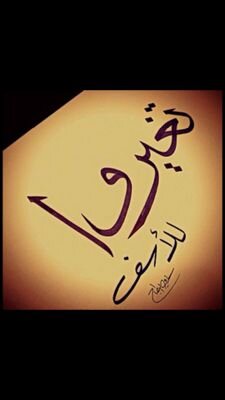 تغيروا
للأسف